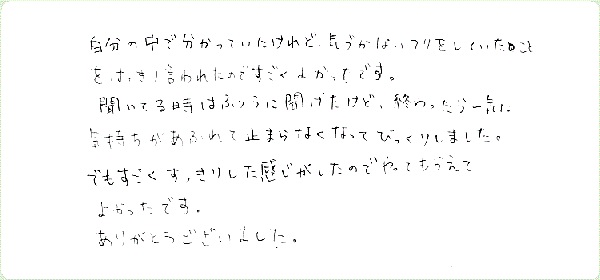 自分の中で分かっていたけれど、気づかないフリをしていたこと
をはっきり言われたのですごくよかったです。
聞いてる時はふつうに聞けたけど、終わったら一気に
気持ちがあふれて止まらなくなってびっくりしました。
でもすごくすっきりした感じがしたのでやってもらえて
よかったです。
ありがとうございました。